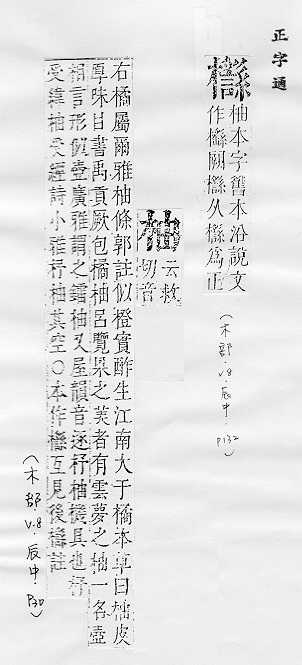 正字通
柚本字舊本沿說文
作櫾闕櫾久櫾為正
(木部.v8.辰中.P132)
柚
云救
切音
右橘屬爾雅柚條郭註似橙實酢生江南大于橘本草曰柚皮
厚味甘書禹貢厥包橘柚呂覽果之美者有雲夢之柚一名壺
柑言形似壺廣雅謂之鐳柚又屋韻音逐杼柚機具也杼
受緯柚受經詩小雅杼柚其空○本作櫾互見後櫾註
(木部 v.8.辰中.P30)